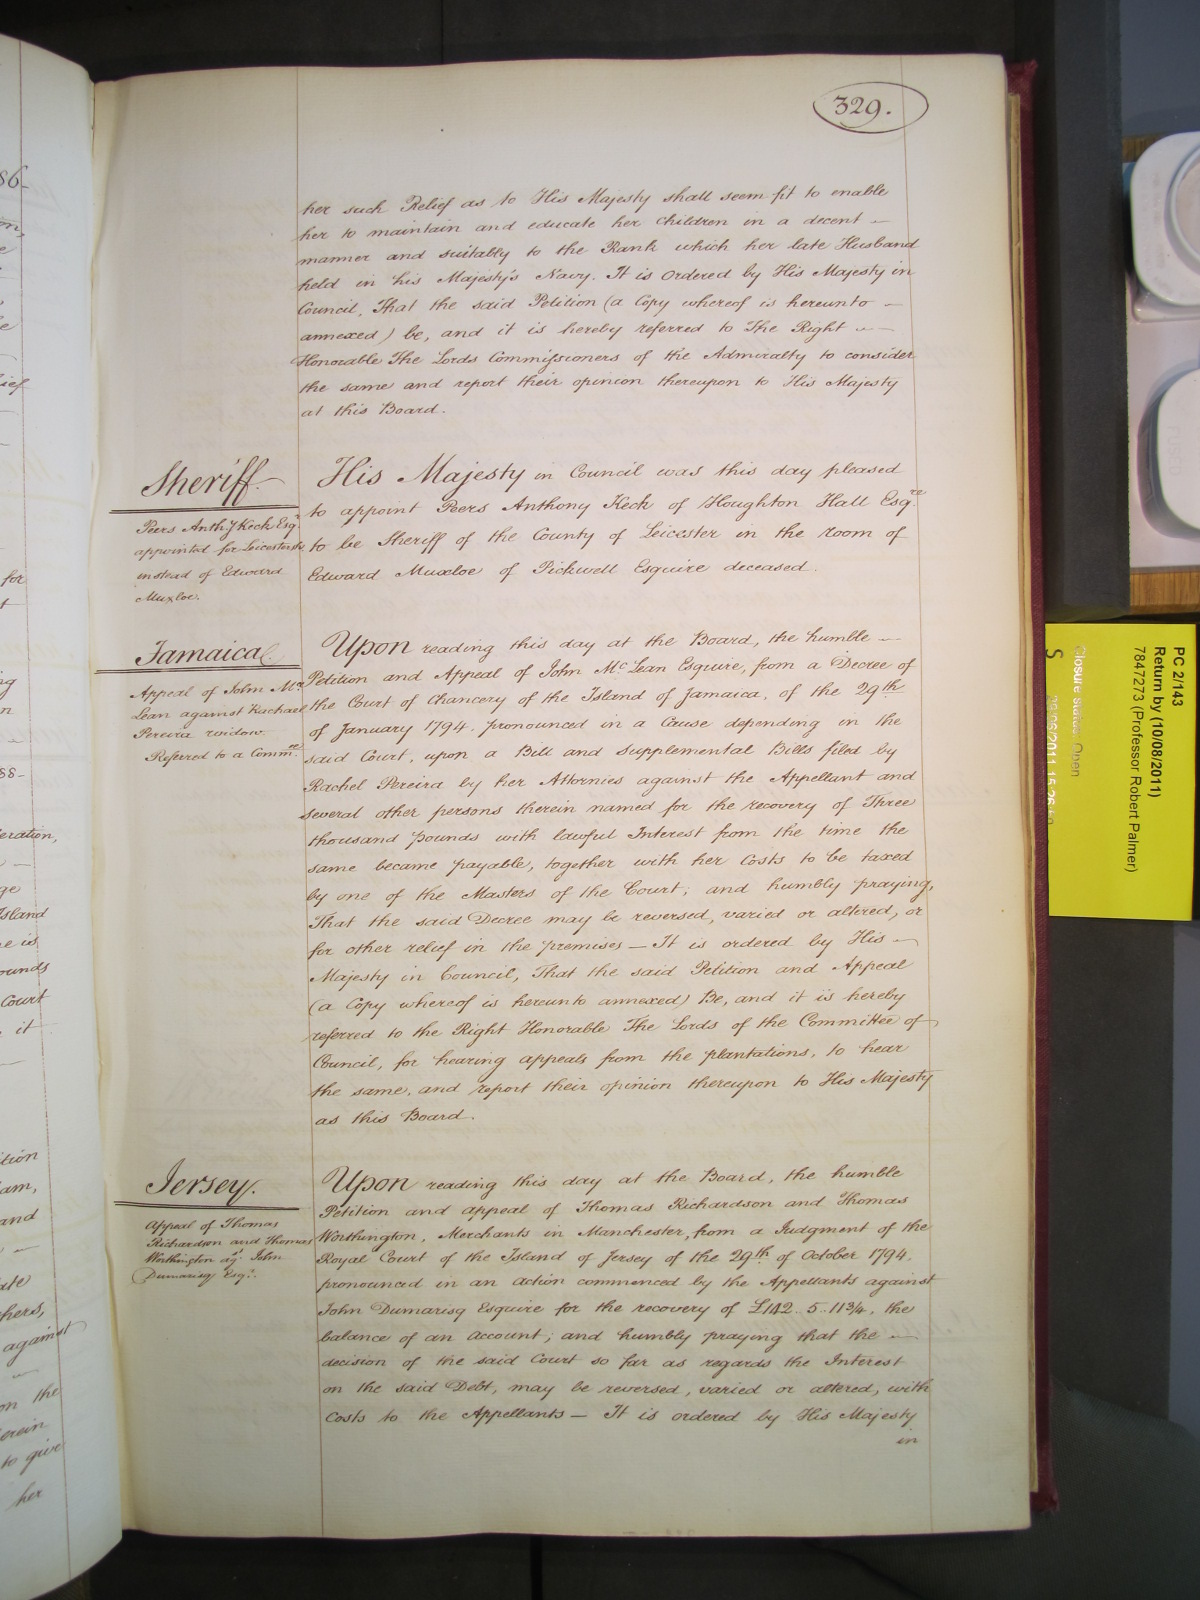 329.
her such Relief as to His Majesty shall seem fit to enable
her to maintain and educate her Children in a decent —
manner and suitably to the Rank which her late Husband
held in his Majesty's Navy. It is Ordered by His Majesty in
Council, That the said Petition (a Copy whereof is hereunto —
annexed) be, and it is hereby referred to The Right —
Honorable The Lords Commissioners of the Admiralty to consider
the same and report their opinion thereupon to His Majesty
at this Board.
Sheriff
Peers Anthy Keck Esqr
appointed for Leicestersh
instead of Edward
Muxloe.
His Majesty in Council was this day pleased
to appoint Peers Anthony Keck of Houghton Hall Esqre
to be Sheriff of the County of Leicester in the room of
Edward Muxloe of Pickwell Esquire deceased.
Jamaica.
Appeal of John Mc
Lean against Rachael
Pereira widow
Referred to a Commee
Upon reading this day at the Board, the humble —
Petition and Appeal of John Mc Lean Esquire, from a Decree of
the Court of Chancery of the Island of Jamaica, of the 29th
of January 1794. pronounced in a Cause depending in the
said Court, upon a Bill and Supplemental Bills filed by
Rachel Pereira by her Attornies against the Appellant and
several other persons therein named for the recovery of Three
thousand pounds with lawful Interest from the time the
same became payable, together with her Costs to be taxed
by one of the Masters of the Court; and humbly praying,
That the said Decree may be reversed, varied or altered, or
for other relief in the premises — It is ordered by His —
Majesty in Council, That the said Petition and Appeal
(a Copy whereof is hereunto annexed) Be, and it is hereby
referred to the Right Honorable The Lords of the Committee of
Council, for hearing appeals from the plantations, to hear
the same, and report their opinion thereupon to His Majesty
as this Board.
Jersey.
Appeal of Thomas
Richardson and Thomas
Worthington agt John
Dumarisq Esqr.
Upon reading this day at the Board, the humble
Petition and appeal of Thomas Richardson and Thomas
Worthington, Merchants in Manchester, from a Judgment of the
Royal Court of the Island of Jersey of the 29th of October 1794.
pronounced in an Action commenced by the Appellants against
John Dumarisq Esquire for the recovery of £142..5..11¾, the
balance of an Account; and humbly praying that the —
decision of the said Court so far as regards the Interest
on the said Debt, may be reversed, varied or altered, with
Costs to the Appellants — It is ordered by His Majesty
in
PC 2/143
Return by (10/08/2011)
7847273 (Professor Robert Palmer)
Closure status: Open
S